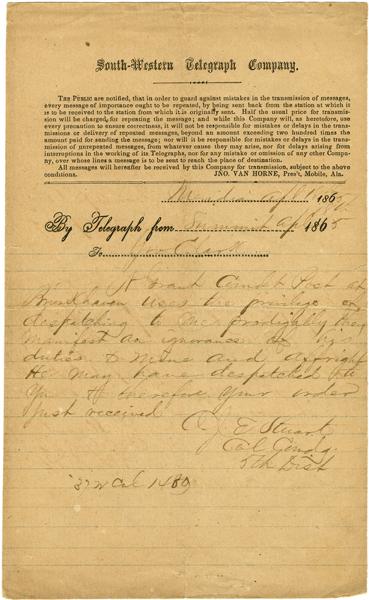 South-Western Telegraph Company.
THE PUBLIC are notified, that in order to guard against mistakes in the transmission of messages,
every message of importance ought to be repeated, by being sent back from the station at which it
is to be received to the station from which it is originally sent. Half the usual price for transmis-
sion will be charged for repeating the message; and while this Company will, as heretofore, use
every precaution to ensure correctness, it will not be responsible for mistakes or delays in the trans-
missions or delivery of repeated messages, beyond an amount exceeding two hundred times the
amount paid for sending the message; nor will it be responsible for mistakes or delays in the trans-
mission of unrepeated messages, from whatever cause they may arise, nor for delays arising from
interruptions in the working of its Telegraphs, nor for any mistake or omission of any other Compa-
ny, over whose lines a message is to be sent to reach the place of destination.
All messages will hereafter be received by this Company for transmission, subject to the above
conditions. JNO. VAN HORNE, Pres't, Mobile, Ala.
186
By Telegraph from Summit 1865
To Gov Clark
A Grant Comdt Post at
Brookhaven uses the privilege of
despatching to me
manifest an ignorance of his
duties to mine and
He may have despatched to
You therefore your order
Just received
E Stuart
Col Comdg
5th Dist
37 W Col 1480